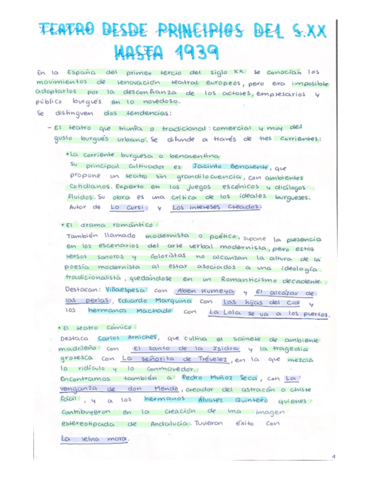 TEATRO DESDE PRINCIPIOS DEL S.XX
HASTA 1939
En la España del primer tercio del siglo XX se conocían los
movimientos de renovación teatral europeos, pero era imposible
adaptarlos por la desconfianza de los actores, empresarios y
público burgués en lo novedoso.
Se distinguen dos tendencias:
- El teatro que triunfa o tradicional: comercial y muy del
gusto burgués urbano. Se difunde a través de tres corrientes:
• La corriente burguesa o benaventina:
Su principal cultivador es Jacinto Benavente, que
propone un teatro sin grandilocuencia, con ambientes
cotidianos. Experto en los juegos escénicos y diálogos
fluidos. Su obra es una crítica de los ideales burgueses.
Autor de Lo Cursi y Los intereses creados.
• El drama romántico:
También llamado modernista o poético, supone la presencia
en los escenarios del arte verbal modernista, pero estos
versos sonoros y coloristas no alcanzan la altura de la
poesía modernista al estar asociados a una ideología
tradicionalista, quedándose en un Romanticismo decadente.
Destacan: Villaespesa con Aben Humeya y El alcázar de
las perlas, Eduardo Marquina con Las hijas del Cid y
los hermanos Machado con La Lola se va a los puertos.
• El teatro cómico:
Destaca Carlos Arniches, que cultiva el sainete de ambiente
madrileño con El santo de la Isidra y la tragedia
grotesca con La señorita de Trévelez, en la que mezcla
lo ridículo y lo conmovedor.
Encontramos también a Pedro Muñoz Seca, con La
venganza de don Mendo, creador del astracán o chiste
fácil, y a los hermanos Álvarez Quintero quienes
contribuyeron en la creación de una imagen
estereotipada de Andalucía. Tuvieron éxito con
La reina mora.